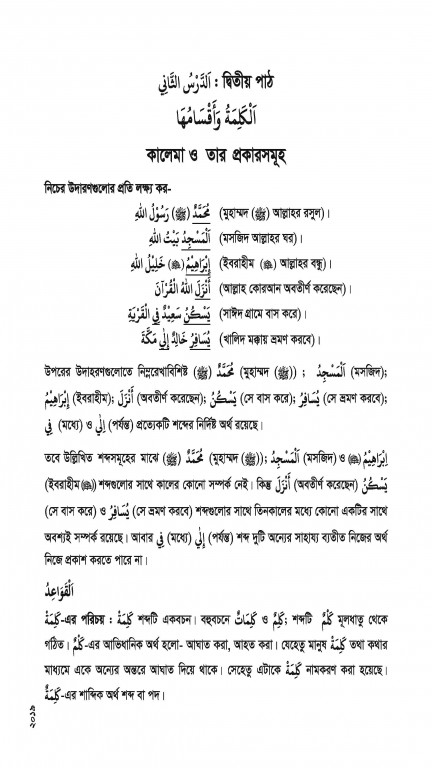 اَلدَّرْسُ الثَّانِي : দ্বিতীয় পাঠ
اَلْكَلِمَةُ وَأَقْسَامُهَا
কালেমা ও তার প্রকারসমূহ
নিচের উদারণগুলোর প্রতি লক্ষ্য কর-
مُحَمَّدٌ (ﷺ) رَسُوْلُ اللهِ (মুহাম্মদ (ﷺ) আল্লাহর রসুল)।
اَلْمَسْجِدُ بَيْتُ اللهِ (মসজিদ আল্লাহর ঘর)।
إِبْرَاهِيْمُ (ﷺ) خَلِيْلُ اللهِ (ইবরাহীম (ﷺ) আল্লাহর বন্ধু)।
أَنْزَلَ اللهُ الْقُرْآنَ (আল্লাহ কোরআন অবতীর্ণ করেছেন)।
يَسْكُنُ سَعِيْدٌ فِي الْقَرْيَةِ (সাঈদ গ্রামে বাস করে)।
يُسَافِرُ خَالِدٌ إِلٰي مَكَّةَ (খালিদ মক্কায় ভ্রমণ করবে)।
উপরের উদাহরণগুলোতে নিম্নরেখাবিশিষ্ট (ﷺ) مُحَمَّدٌ (মুহাম্মদ (ﷺ)) ; اَلْمَسْجِدُ (মসজিদ);
إِبْرَاهِيْمُ (ইবরাহীম); أَنْزَلَ (অবতীর্ণ করেছেন); يَسْكُنُ (সে বাস করে); يُسَافِرُ (সে ভ্রমণ করবে);
فِي (মধ্যে) ও إِلٰي (পর্যন্ত) প্রত্যেকটি শব্দের নির্দিষ্ট অর্থ রয়েছে।
তবে উল্লিখিত শব্দসমূহের মাঝে (ﷺ) مُحَمَّدٌ (মুহাম্মদ (ﷺ)); اَلْمَسْجِدُ (মসজিদ) ও (ﷺ) إِبْرَاهِيْمُ
(ইবরাহীম(ﷺ)) শব্দগুলোর সাথে কালের কোনো সম্পর্ক নেই। কিন্তু أَنْزَلَ (অবতীর্ণ করেছেন) يَسْكُنُ
(সে বাস করে) ও يُسَافِرُ (সে ভ্রমণ করবে) শব্দগুলোর সাথে তিনকালের মধ্যে কোনো একটির সাথে
অবশ্যই সম্পর্ক রয়েছে। আবার فِي (মধ্যে) إِلٰي (পর্যন্ত) শব্দ দুটি অন্যের সাহায্য ব্যতীত নিজের অর্থ
নিজে প্রকাশ করতে পারে না।
اَلْقَوَاعِدُ
كَلِمَةٌ-এর পরিচয় : كَلِمَةٌ শব্দটি একবচন। বহুবচনে كَلِمَاتٌ ও كَلِمٌ; শব্দটি كَلْمٌ মূলধাতু থেকে
গঠিত। كَلْمٌ-এর আভিধানিক অর্থ হলো- আঘাত করা, আহত করা। যেহেতু মানুষ كَلِمَةٌ তথা কথার
মাধ্যমে একে অন্যের অন্তরে আঘাত দিয়ে থাকে। সেহেতু এটাকে كَلِمَةٌ নামকরণ করা হয়েছে।
كَلِمَةٌ-এর শাব্দিক অর্থ শব্দ বা পদ।
২০১৯